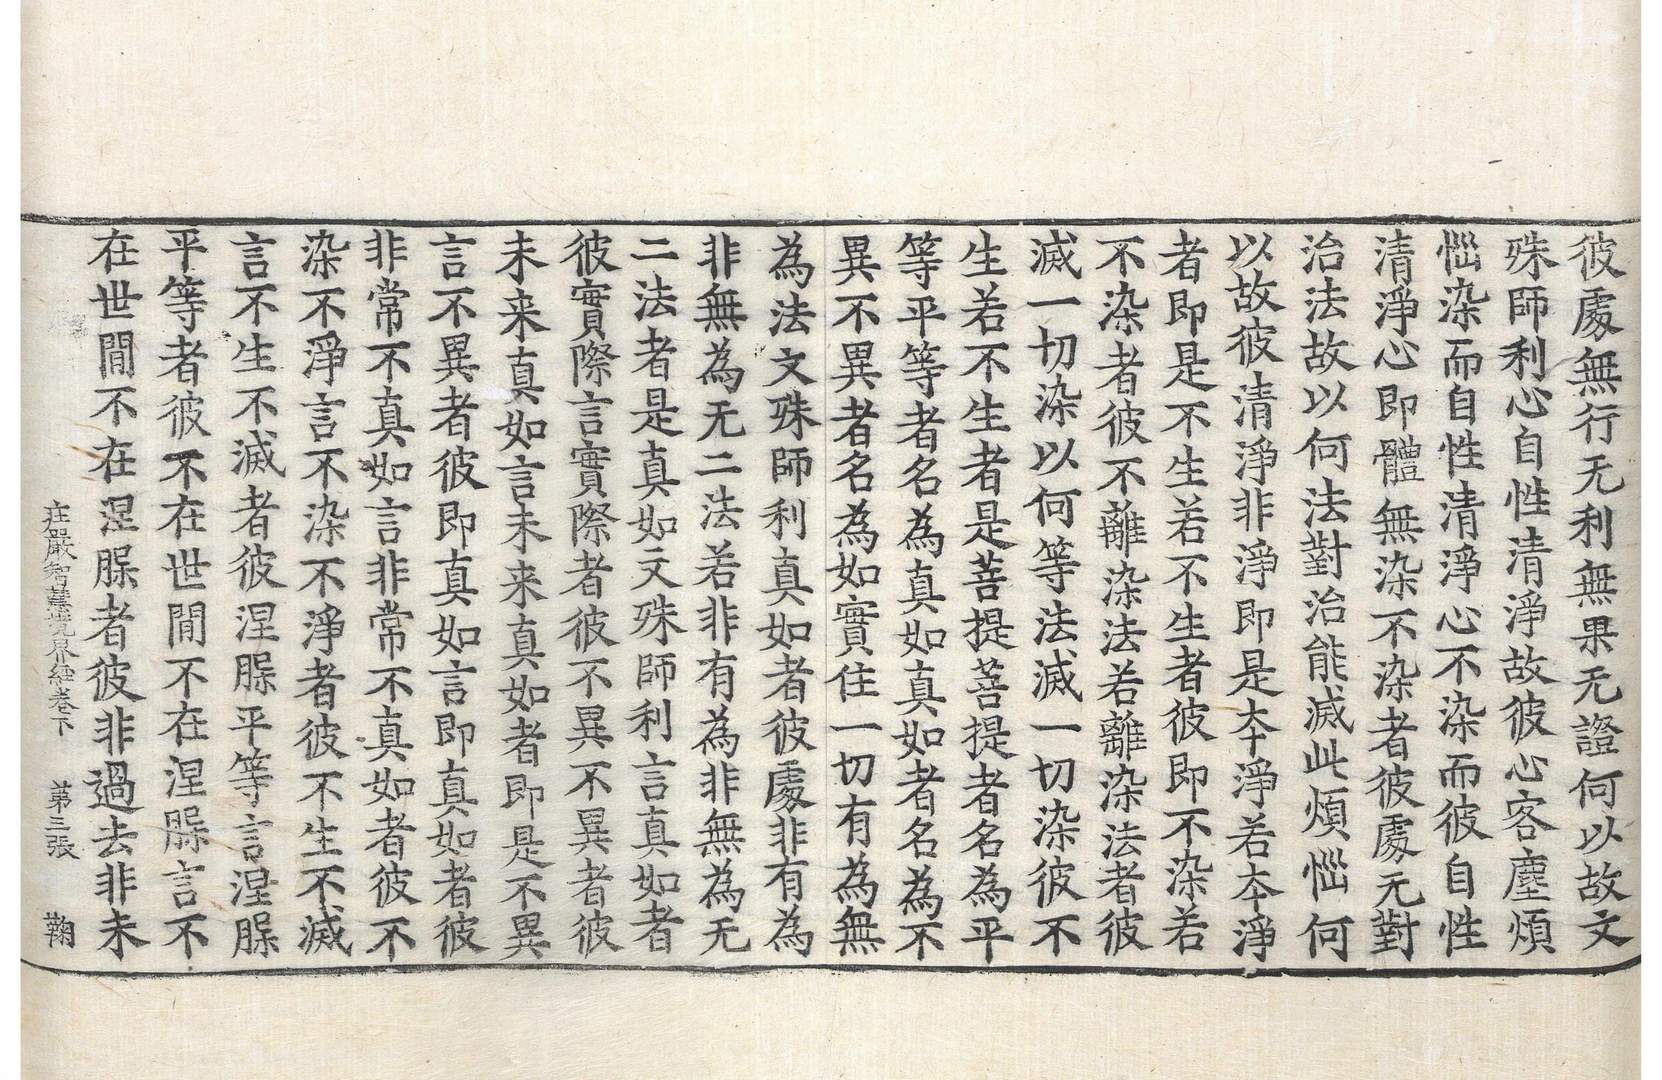 彼處無行无利無果无證何以故文
殊師利心自性清淨故彼心客塵煩
惱染而自性清淨心不染而彼自性
清淨心即體無染不染者彼處无對
治法故以何法對治能滅此煩惱何
以故彼清淨非淨即是本淨若本淨
者即是不生若不生者彼即不染若
不染者彼不離染法若離染法者彼
滅一切染以何等法滅一切染彼不
生若不生者是菩提菩提者名為平
等平等者名為真如真如者名為不
異不異者名為如實住一切有為無
為法文殊師利真如者彼處非有為
非無為无二法若非有為非無為无
二法者是真如文殊師利言真如者
彼實際言實際者彼不異不異者彼
未来真如言未来真如者即是不異
言不異者彼即真如言即真如者彼
非常不真如言非常不真如者彼不
染不淨言不染不淨者彼不生不滅
言不生不滅者彼涅脲平等言涅脲
平等者彼不在世間不在涅脲言不
在世間不在涅脲者彼非過去非未
庄嚴智慧光界經卷下 第三張 鞠